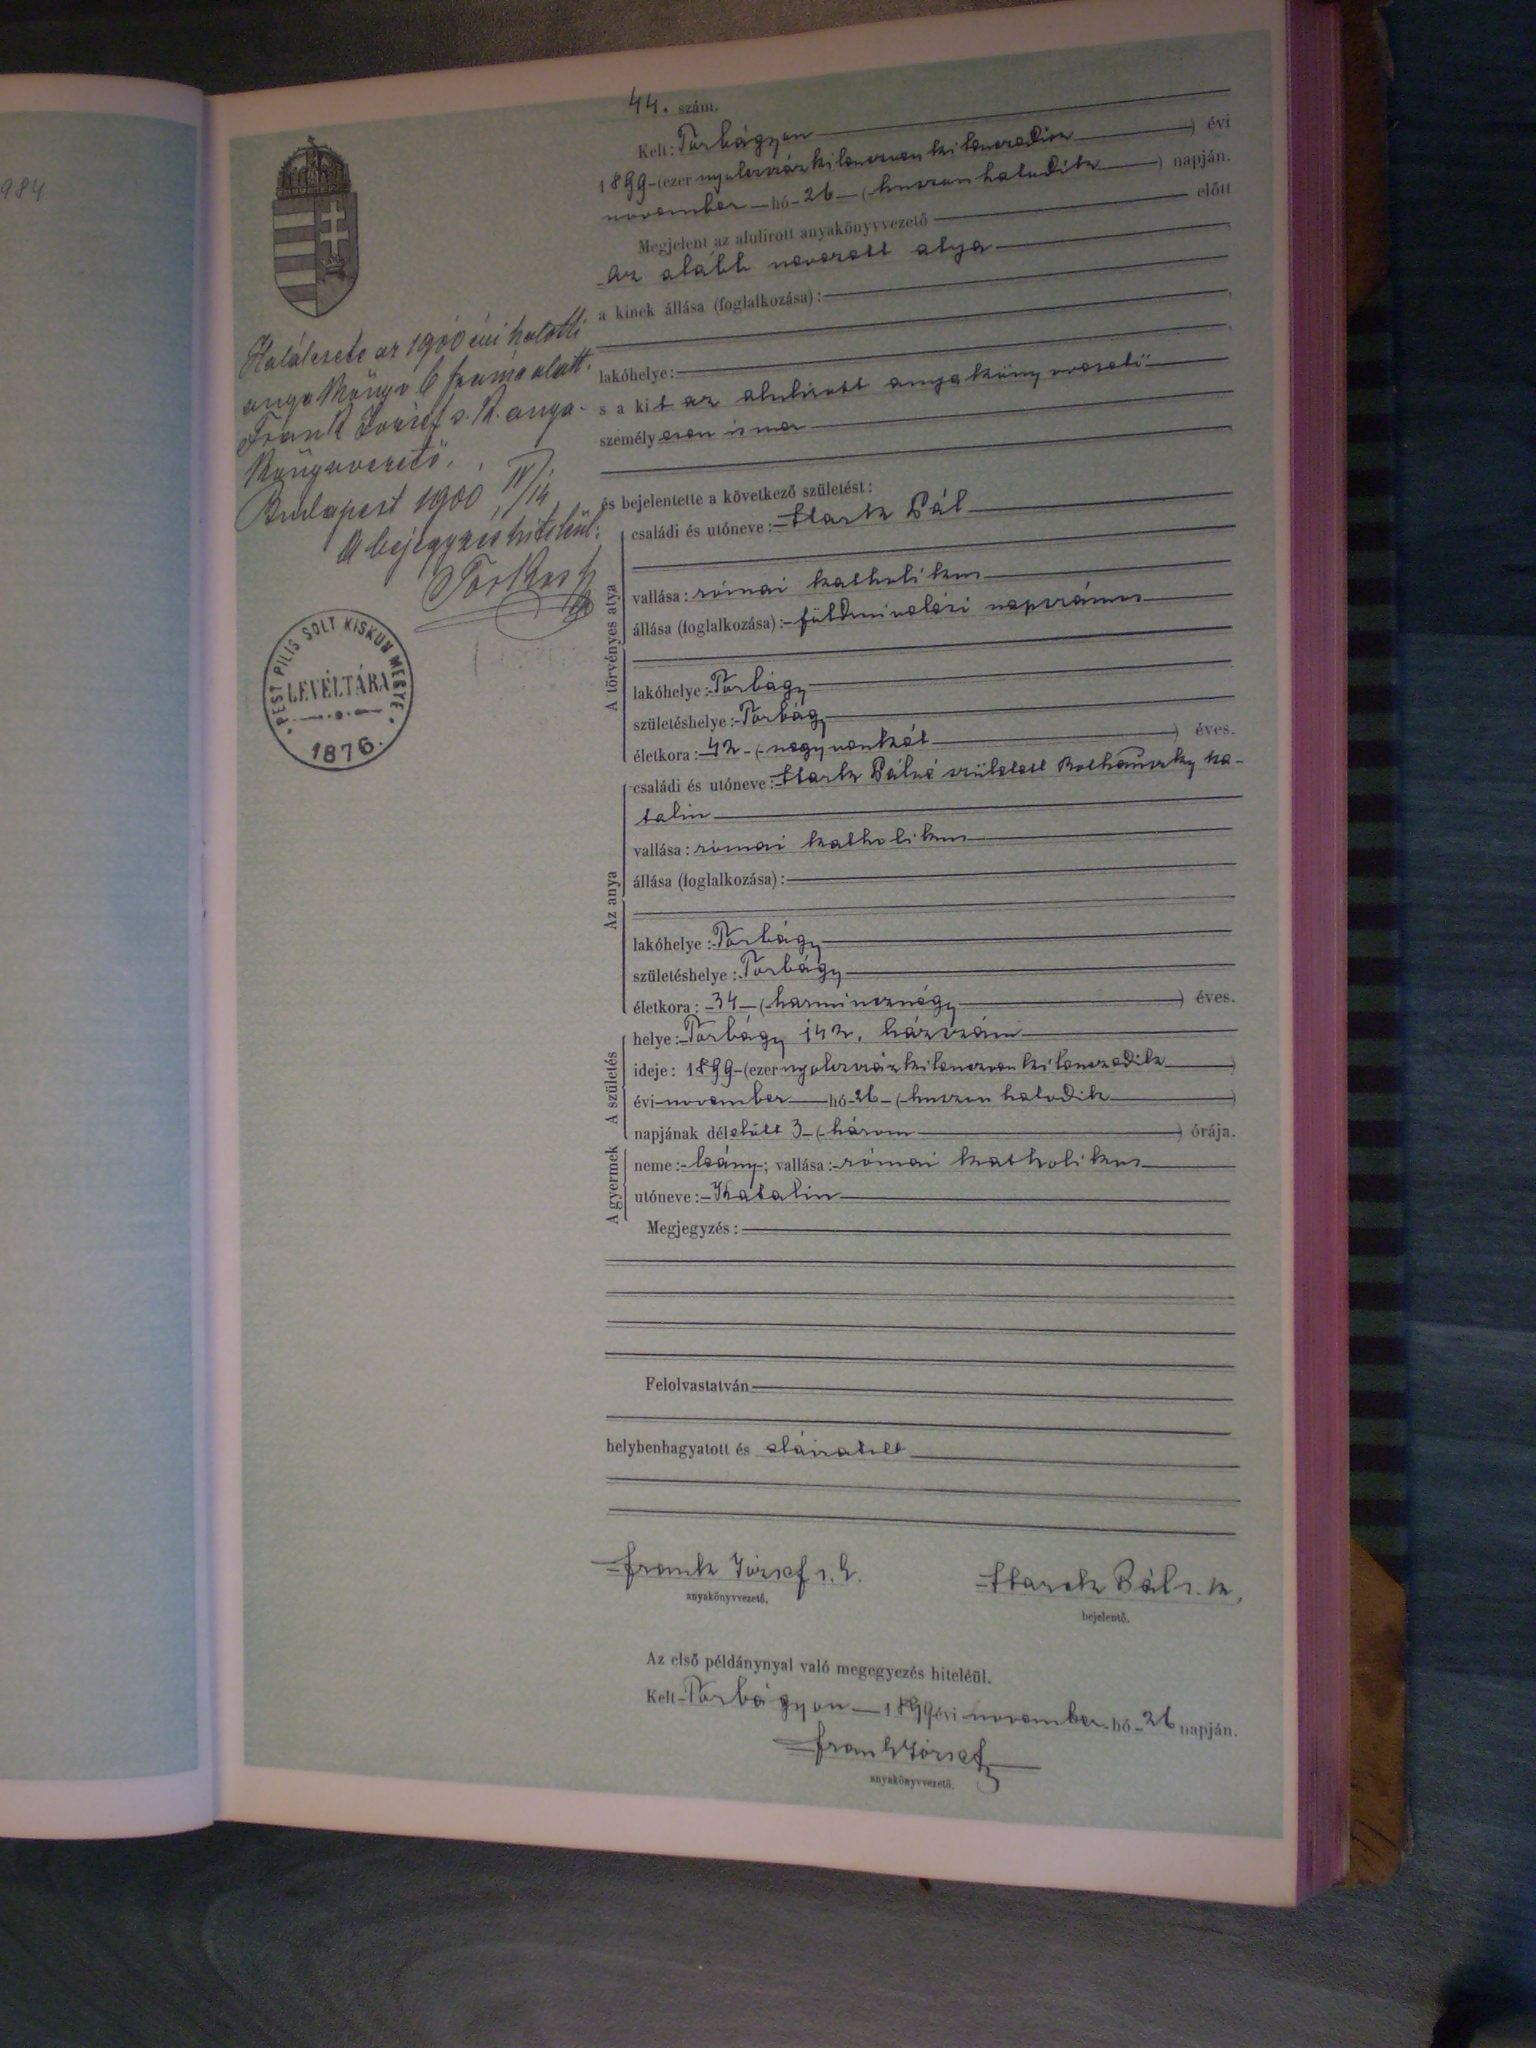 984
44. szám.
Kelt: Torbágyon
1899 – (ezer nyolczszáz kilenczven kilenczedik) évi
november hó 26 – (huszon hatodik) napján.
Megjelent az alulirott anyakönyvvezető előtt
az alább nevezett atya
a kinek állása (foglalkozása):
lakóhelye:
s a kit az alulírott anyakönyvvezető
személyesen ismer
és bejelentette a következő születést:
A törvényes atya
családi és utóneve: Stark Pál
vallása: római katholikus
állása (foglalkozása): földmivelési napszámos
lakóhelye: Torbágy
születéshelye: Torbágy
életkora: 42 – (negyvenkét) éves.
Az anya
családi és utóneve: Stark Pálné született Ka-
talin
vallása: római katholikus
állása (foglalkozása):
lakóhelye: Torbágy
születéshelye: Torbágy
életkora: 34 – (harmincznégy) éves.
A születés
helye: Torbágy 142. házszám
ideje: 1899 – (ezer nyolczszáz kilenczven kilenczedik)
évi november hó 26 – (huszon hatodik)
napjának délelőtt 3 – (három) órája.
A gyermek
neme: leány; vallása: római katholikus
utóneve: Katalin
Megjegyzés:
Felolvastatván
helybenhagyatott és aláiratott
Frank József s. k.
anyakönyvvezető.
Starck Pál s. k.
bejelentő.
Az első példánynyal való megegyezés hiteléül.
Kelt Torbágyon 1899 évi november hó 26 napján.
Frank József
anyakönyvvezető.
Halálesete az 1900 évi halotti
anyakönyv 6 száma alatt.
Frank József s. k. anya-
könyvvezető.
Budapest 1900, IV/14
A bejegyzés hiteléül:
PEST PILIS SOLT KISKUN MEGYE
LEVÉLTÁRA
1876.